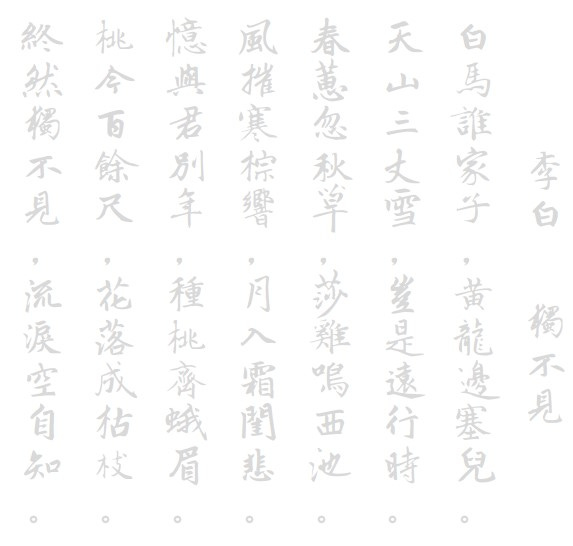 李白　獨不見
白馬誰家子，黃龍邊塞兒。
天山三丈雪，豈是遠行時。
春蕙忽秋草，莎雞鳴西池。
風摧寒棕響，月入霜閨悲。
憶與君別年，種桃齊蛾眉。
桃今百餘尺，花落成枯枝。
終然獨不見，流淚空自知。